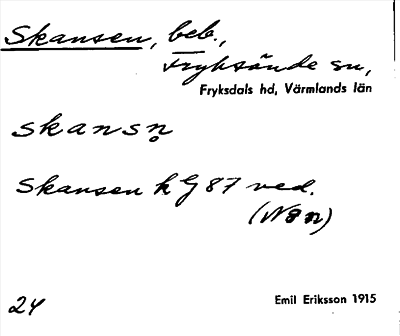 Skansen, beb.,
Fryksände sn,
Fryksdals hd, Värmlands län
skansn̥
Skansen h G 87 ved.
(N8n)
24
Emil Eriksson 1915